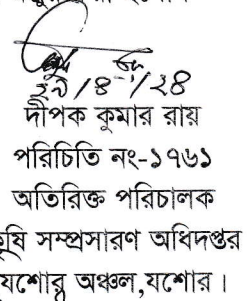 ২৯/৪/২৪
দীপক কুমার রায়
পরিচিতি নং-১৭৬১
অতিরিক্ত পরিচালক
কৃষি সম্প্রসারণ অধিদপ্তর
যশোর অঞ্চল,যশোর।